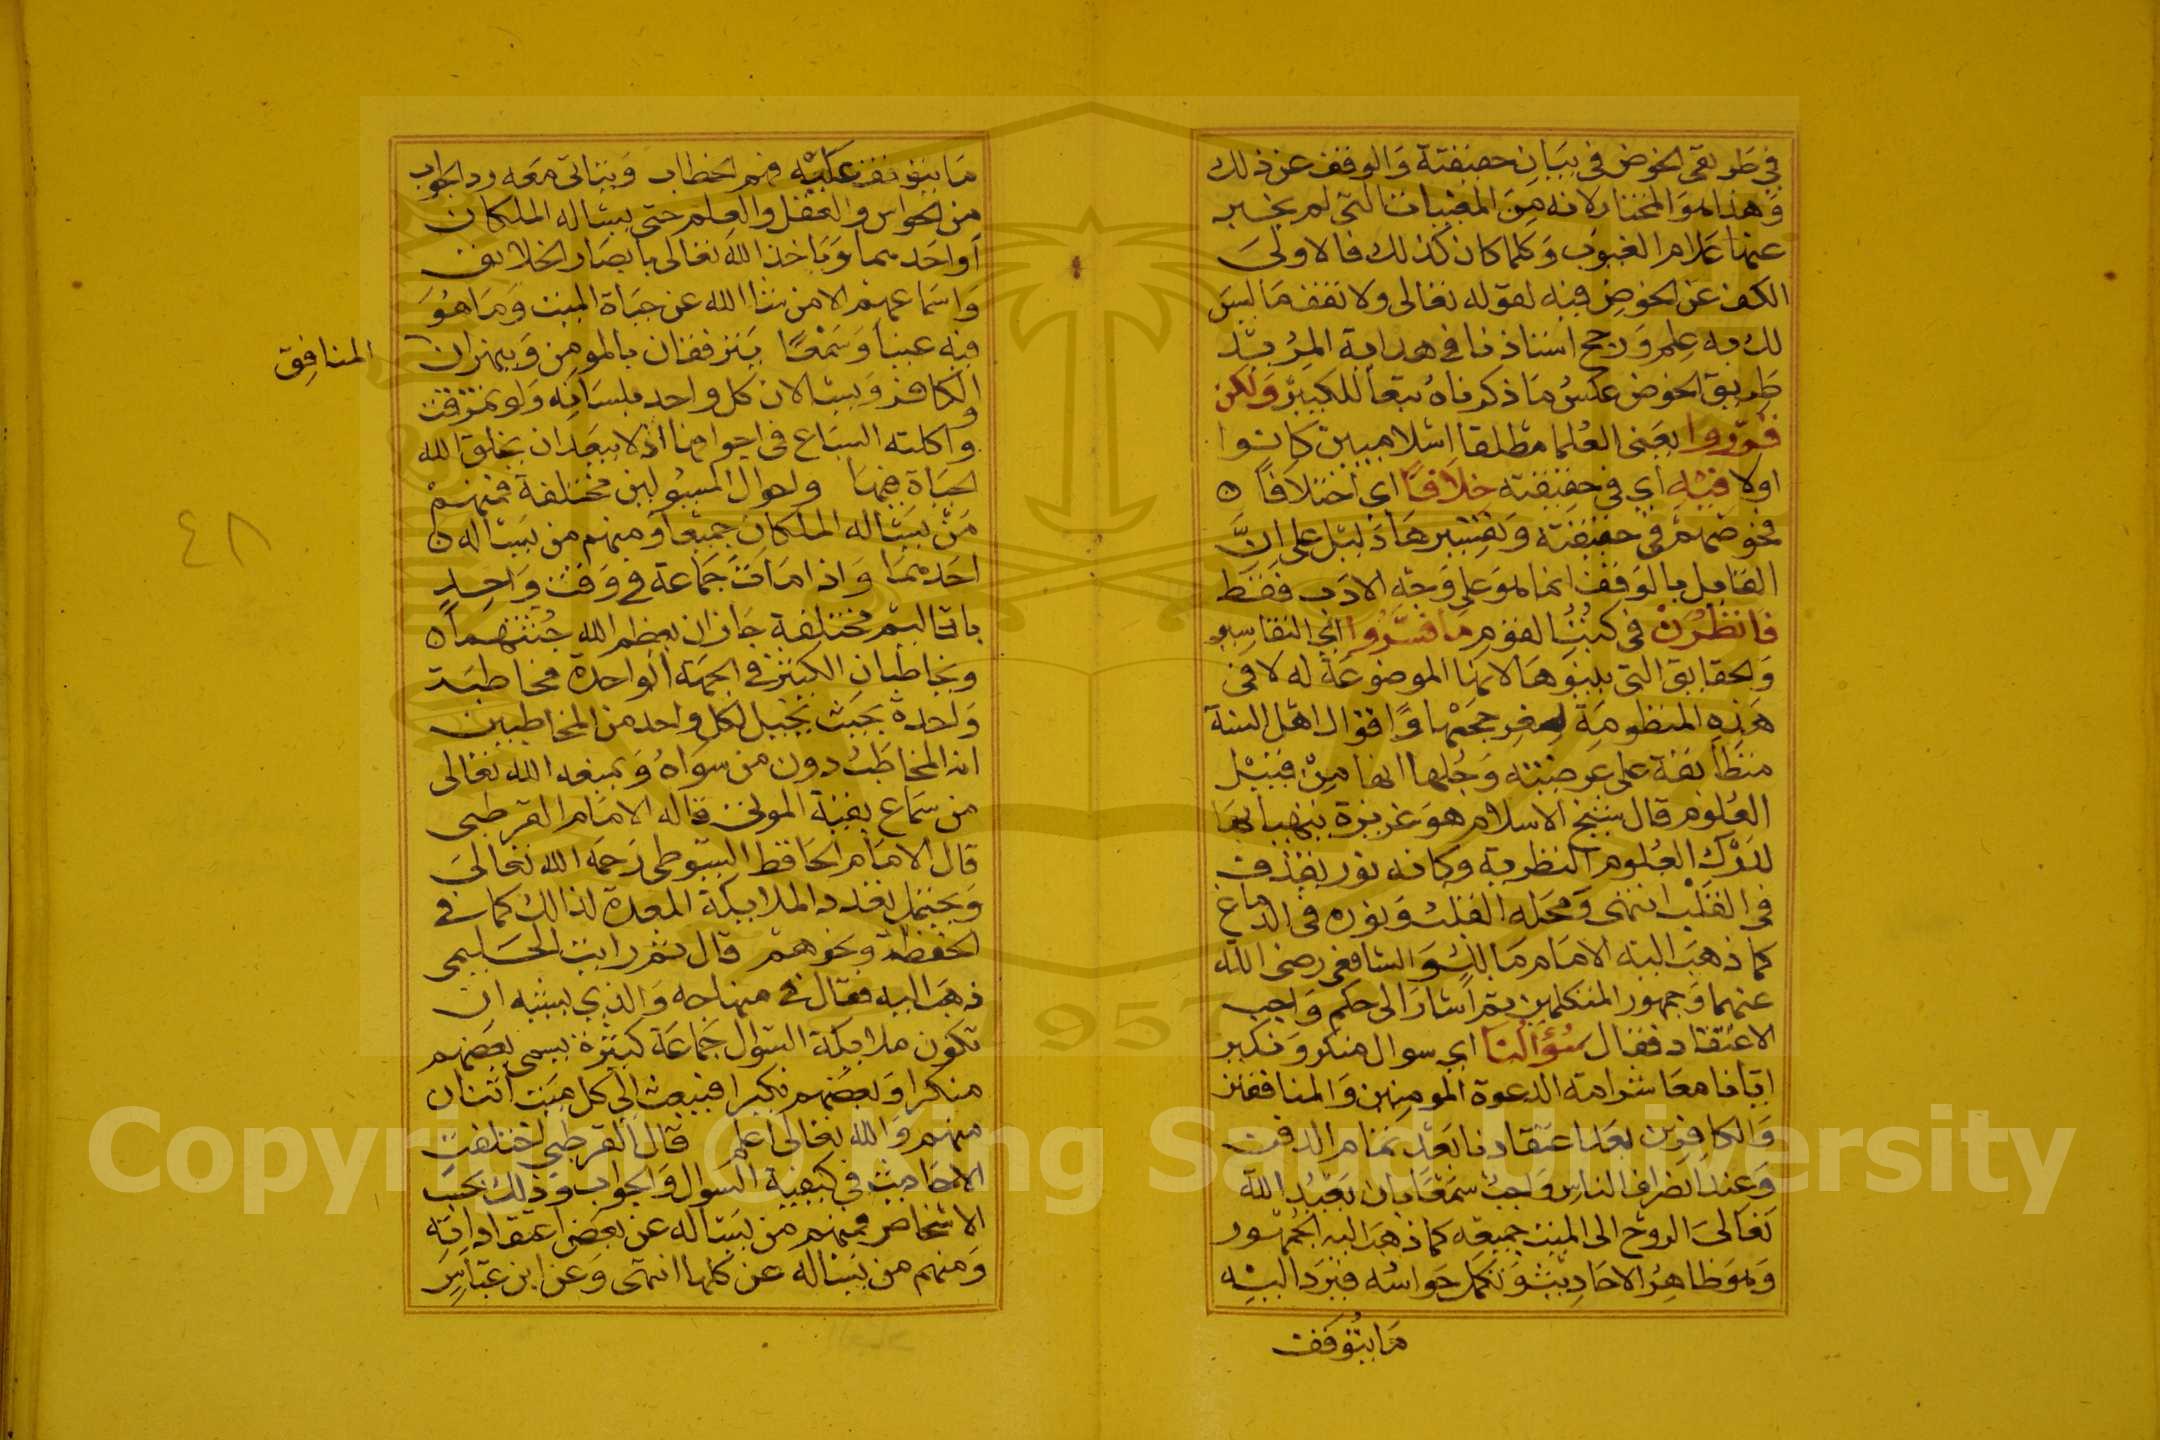 في طريقي الخوض في بيان حقيقته والوقف عن ذلك
وهذا هو المختار لانه من المغيبات التي لم يخبر
عنها علام الغيوب وكلما كان كذلك فالاولى
الكف عن الخوض فيه لقوله تعالى ولا تقف ما ليس
لك به علم ورجح استاذنا في هداية المريد
طريق الخوض عكس ما ذكرناه تبعا للكبير ولكن
قرروا يعني العلما مطلقا اسلاميين كانوا
اولا فيه اي في حقيقته خلافا اي اختلافا ه
فخوضهم في حقيقته وتفسيرها دليل على ان
القايل بالوقف انما هو على وجه الادب فقط
فانظرن في كتب القوم ما فسروا اي التفاسير
والحقايق التي بينوها لانها الموضوعة له لا في
هذه المنظومة لصغر حجمها واقوال اهل السنة
متطابقة على عرضيته وجلها انها من قبيل
العلوم قال شيخ الاسلام هو غريزة يتهيا بها
لدرك العلوم النظرية وكانه نور يقذف
في القلب انتهى ومحله القلب ونوره في الدماغ
كما ذهب اليه الامام مالك والشافعي رضي الله
عنهما وجمهور المتكلمين ثم اشار الى حكم واجب
الاعتقاد فقال سؤالنا اي سوال منكر ونكير
ايانا معاشر امة الدعوة المومنين والمنافقين
والكافرين بعد اعتقادنا بعد تمام الدفن
وعند انصراف الناس واجب سمعا بان يعيد الله
تعالى الروح الى الميت جميعه كما ذهب اليه الجمهور
وهو ظاهر الاحاديث وتكمل حواسه فيرد اليه
ما يتوقف
ما يتوقف عليه فهم الخطاب ويتاتى معه رد الجواب
من الحواس والعقل والعلم حتى يساله الملكان
او احدهما وياخذ الله تعالى بابصار الخلائق
واسماعهم الا من شا الله عن حياة الميت وما هو
فيه عينا وسمعا يترفقان بالمومن وينهران
المنافق
والكافر ويسالان كل واحد بلسانه ولو تمزقت
واكلته السباع في اجوافها اذ لا يبعد ان يخلق الله
الحياة فيها واحوال المسولين مختلفة فمنهم
من يساله الملكان جميعا ومنهم من يساله ه
٤٨
احدهما واذا مات جماعة في وقت واحد
باقاليم مختلفة جاز ان يعظم الله جثتهما ه
ويخاطبان الكثير في الجهة الواحدة مخاطبة
واحدة بحيث يخيل لكل واحد من المخاطبين
انه المخاطب دون من سواه ويمنعه الله تعالى
من سماع بقية الموتى قاله الامام القرطبي
قال الامام الحافظ السيوطي رحمه الله تعالى
ويحتمل تعدد الملايكة المعدة لذالك كما في
الحفظة ونحوهم قال ثم رايت الحليمي
ذهب اليه فقال في منهاجه والذي يشبه ان
تكون ملايكة السوال جماعة كثيرة يسمى بعضهم
منكرا وبعضهم نكيرا فيبعث الى كل ميت اثنان
منهم والله تعالى اعلم قال القرطبي اختلفت
الاحاديث في كيفية السوال والجواب وذلك بحسب
الاشخاص فمنهم من يساله عن بعض اعتقاداته
ومنهم من يساله عن كلها انتهى وعن ابن عباس
Copyright © King Saud University
1957